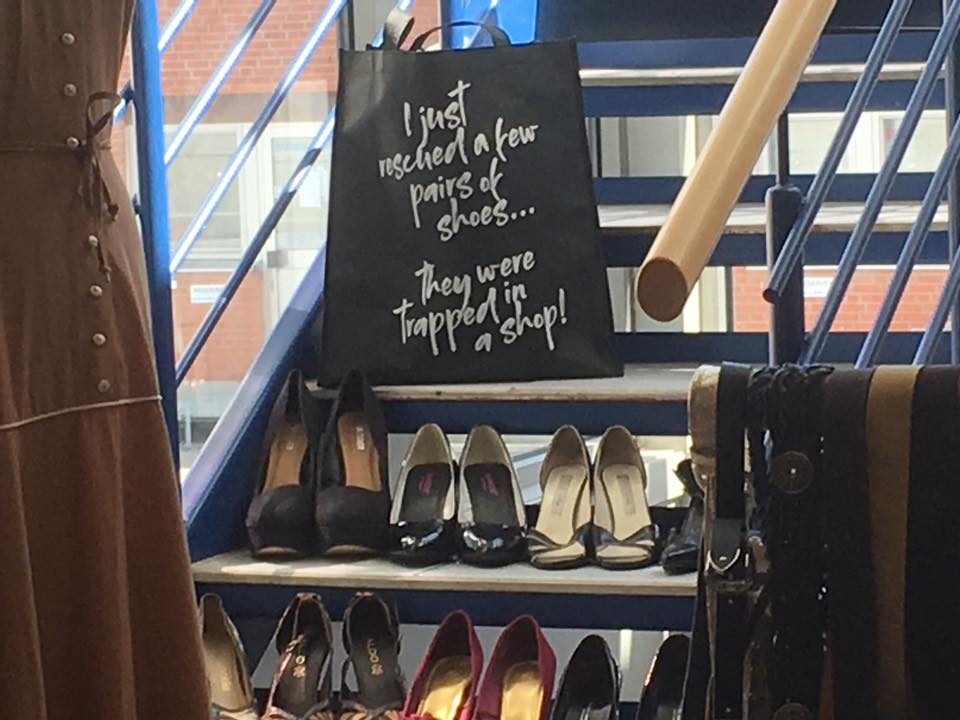 I just
resched a few
pairs of
shoes...
they were
trapped in
a shop!